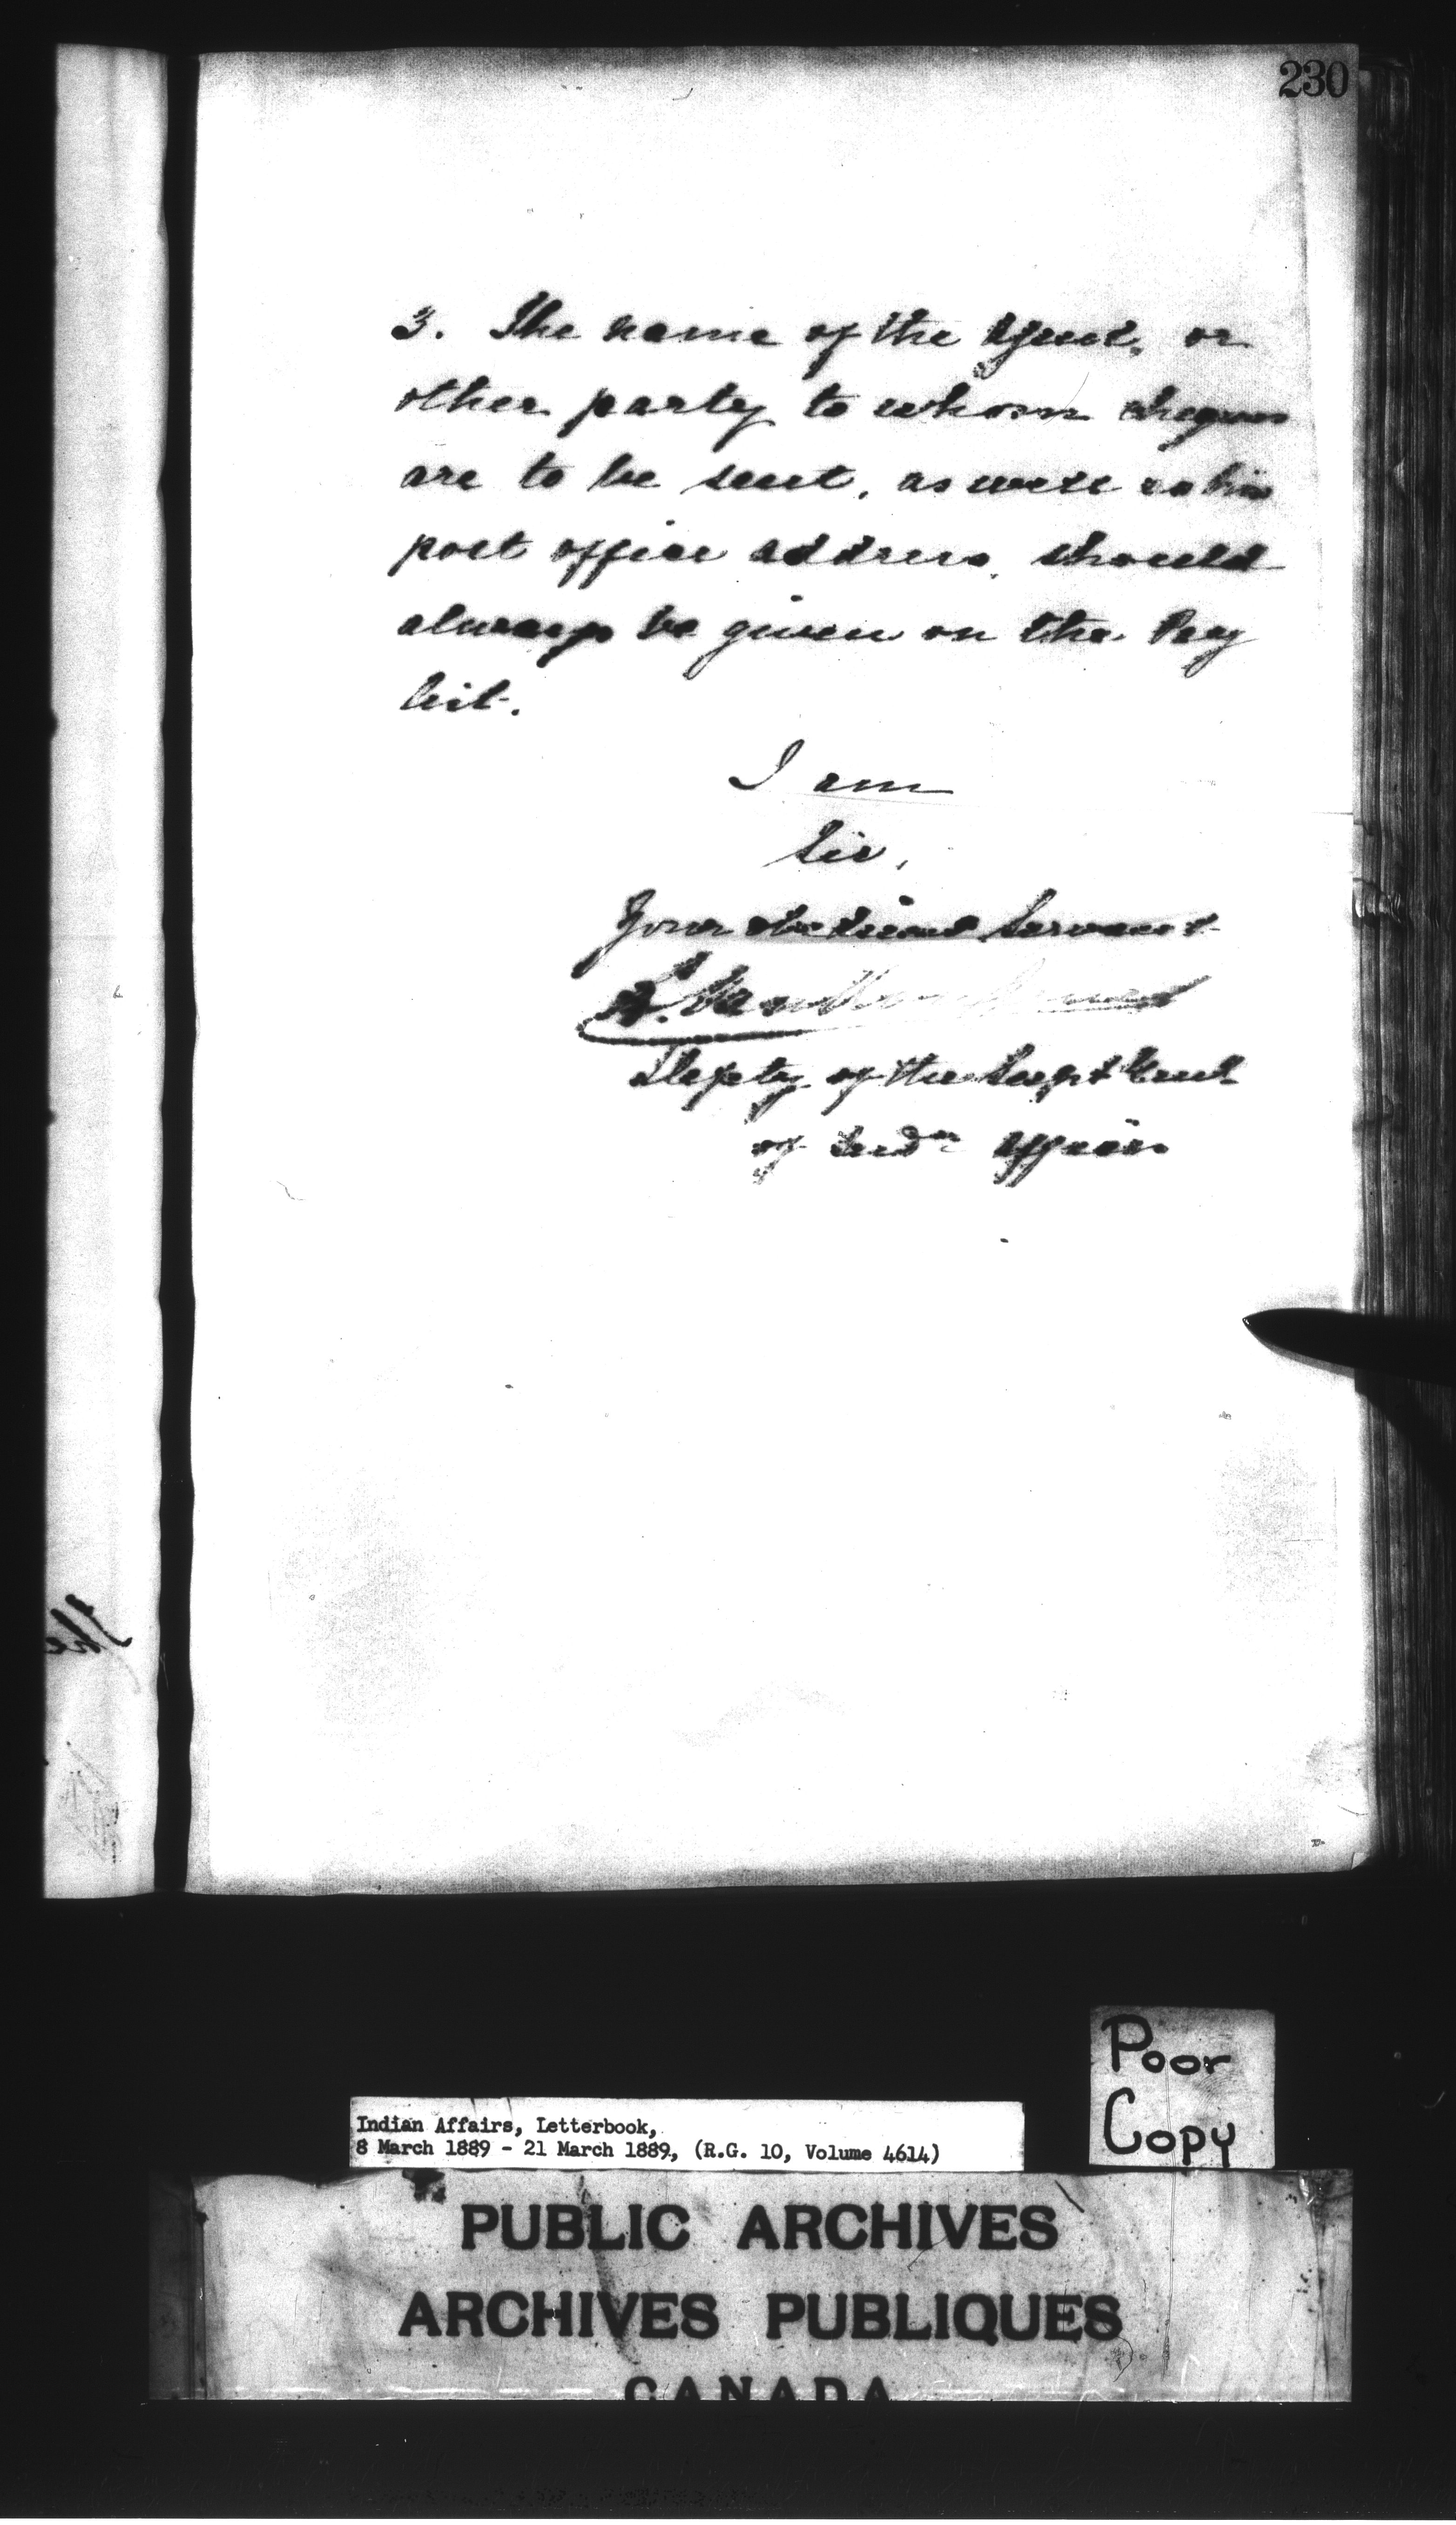 230
3. The name of the Agent, or
other party to whom cheques
are to be sent, as well as his
post office address, should
always be given on the Pay
list.
I am
Sir,
Your obedient Servant
L. Vankoughnet
Deputy of the Supt Genl
of Indn Affairs
The
Poor
Copy
Indian Affairs, Letterbook,
8 March 1889 - 21 March 1889, (R.G. 10, Volume 4614)
PUBLIC ARCHIVES
ARCHIVES PUBLIQUES
CANADA